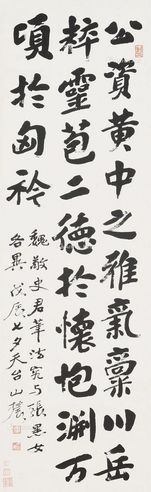 公資黃中之雅氣稟川岳
粹靈苞二德於懷抱測万
頃於匈衿
魏敬史君筆法宛与張黑女
各異戊辰七夕天台山農